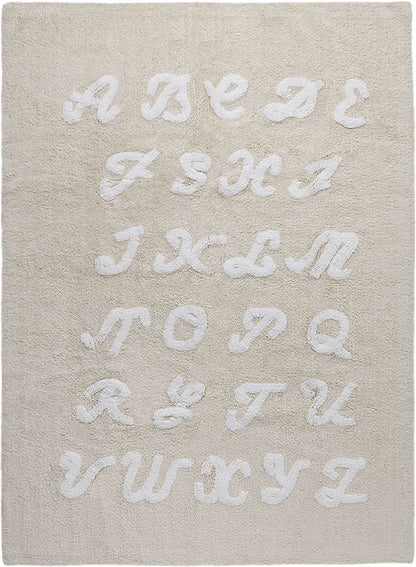 A B C D E
F S H I
J K L M
N O P Q
R S T U
V W X Y Z